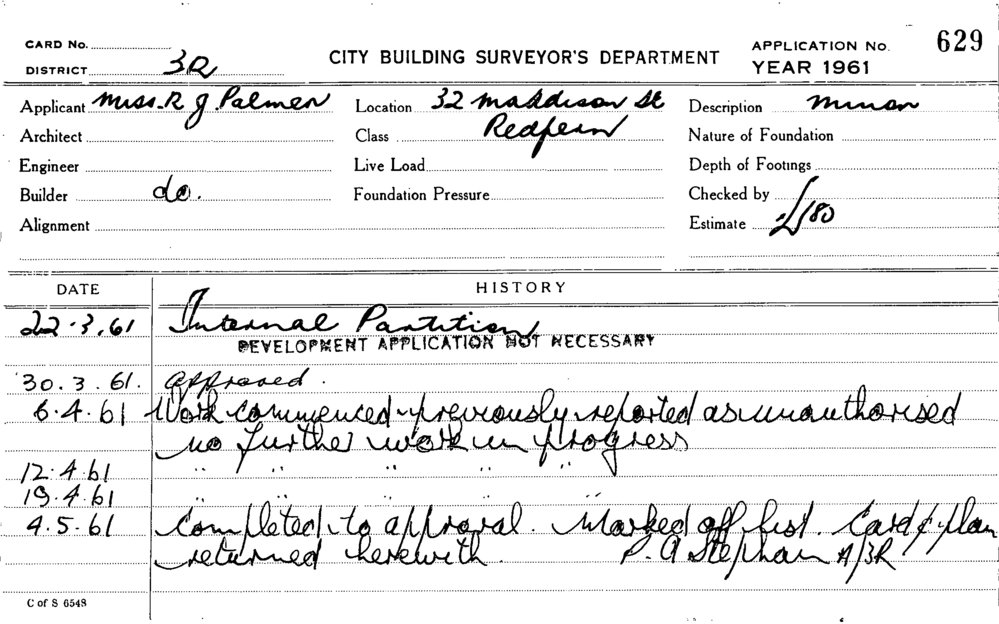 CARD No.
DISTRICT 3R
CITY BUILDING SURVEYOR'S DEPARTMENT
APPLICATION No. 629
YEAR 1961
Applicant Miss. R J. Palmer
Location 32 Maddison St
Description Minor
Architect
Class Redfern
Nature of Foundation
Engineer
Live Load
Depth of Footings
Builder do.
Foundation Pressure
Checked by
Alignment
Estimate £180
DATE HISTORY
22.3.61 Internal Partition
DEVELOPMENT APPLICATION NOT NECESSARY
30.3.61. approved.
6.4.61 Work commenced - previously reported as unauthorised
no further work in progress
12.4.61 " " " " "
19.4.61 " " " " "
4.5.61 Completed to approval. Marked off list. Card & plan
returned herewith. P. A Stephan A/3R
C of S 6548